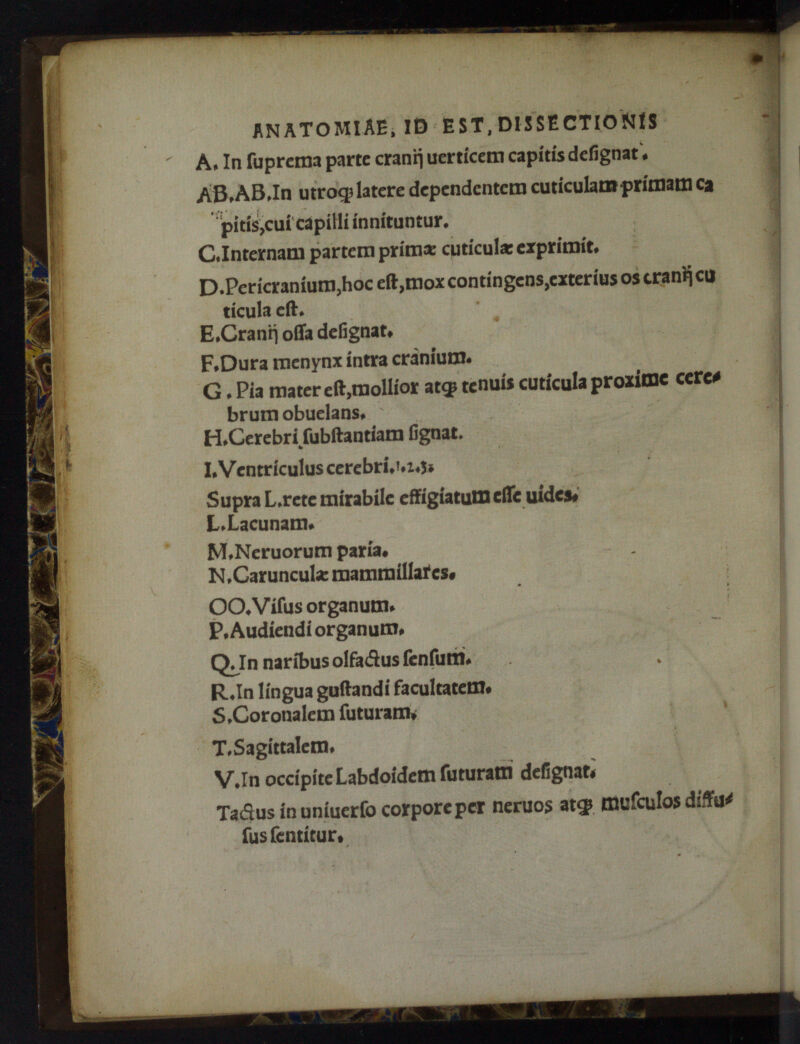 ANATOMIAE, ID EST, DISSECTIONIS
A. In ſuprema parte cranij uerticem capitis deſignat.
AB.AB.In utroqꝫ latere dependentem cuticulam primam ca
pitis,cui capilli innituntur.
C.Internam partem primæ cuticulæ exprimit.
D.Pericranium,hoc eſt,mox contingens,exterius os cranij cu
ticula eſt.
E.Cranij oſſa deſignat.
F.Dura menynx intra cranium.
G. Pia mater eſt,mollior atqꝫ tenuis cuticula proxime cere⸗
brum obuelans.
H.Cerebri ſubſtantiam ſignat.
I.Ventriculus cerebri.1.2.3.
Supra L.rete mirabile effigiatum eſſe uides.
L.Lacunam.
M.Neruorum paria.
N.Carunculæ mammillares.
OO.Viſus organum.
P.Audiendi organum.
Q.In naribus olfactus ſenſum.
R.In lingua guſtandi facultatem.
S.Coronalem futuram.
T.Sagittalem.
V.In occipite Labdoidem futuram deſignat.
Tactus in uniuerſo corpore per neruos atqꝫ muſculos diffu⸗
ſus ſentitur.